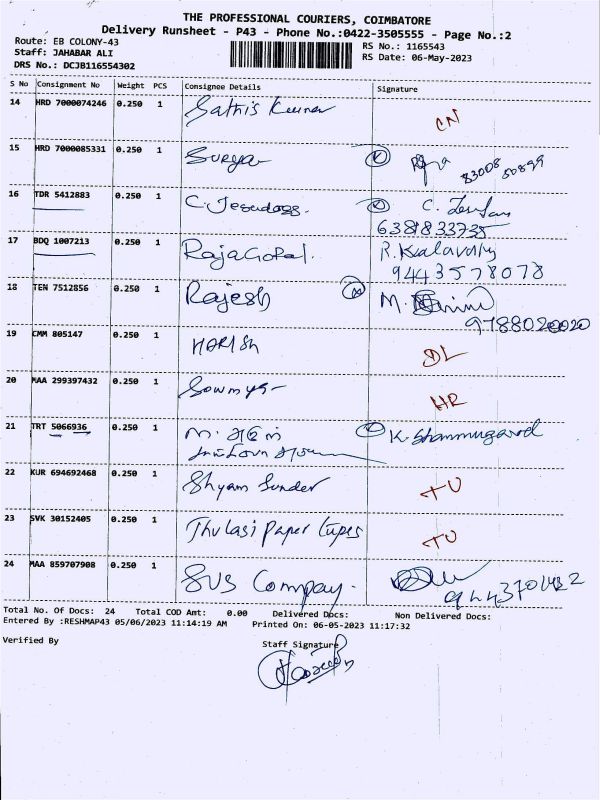 THE PROFESSIONAL COURIERS, COIMBATORE
Delivery Runsheet - P43 - Phone No.:0422-3505555 - Page No.:2
Route: EB COLONY-43
Staff: JAHABAR ALI
DRS No.: DCJB116554302
RS No.: 1165543
RS Date: 06-May-2023
S No Consignment No Weight PCS Consignee Details Signature
14 HRD 7000074246 0.250 1 Sathis Kumar CN
15 HRD 7000085331 0.250 1 Surya 83008 50899
16 TDR 5412883 0.250 1 C. Jesudoss. C.
6381833735
17 BDQ 1007213 0.250 1 RajaGopal. R. Kalavathy
9443578078
18 TEN 7512856 0.250 1 Rajesh M.
9788020020
19 CMM 805147 0.250 1 HARISH DL
20 MAA 299397432 0.250 1 Sowmya HR
21 TRT 5066936 0.250 1 K. Shanmugavel
22 KUR 694692468 0.250 1 Shyam Sunder TU
23 SVK 30152405 0.250 1 Thulasi Paper Tupes TU
24 MAA 859707908 0.250 1 SVS Company.
Total No. Of Docs: 24 Total COD Amt: 0.00 Delivered Docs: Non Delivered Docs:
Entered By :RESHMAP43 05/06/2023 11:14:19 AM Printed On: 06-05-2023 11:17:32
Verified By Staff Signature